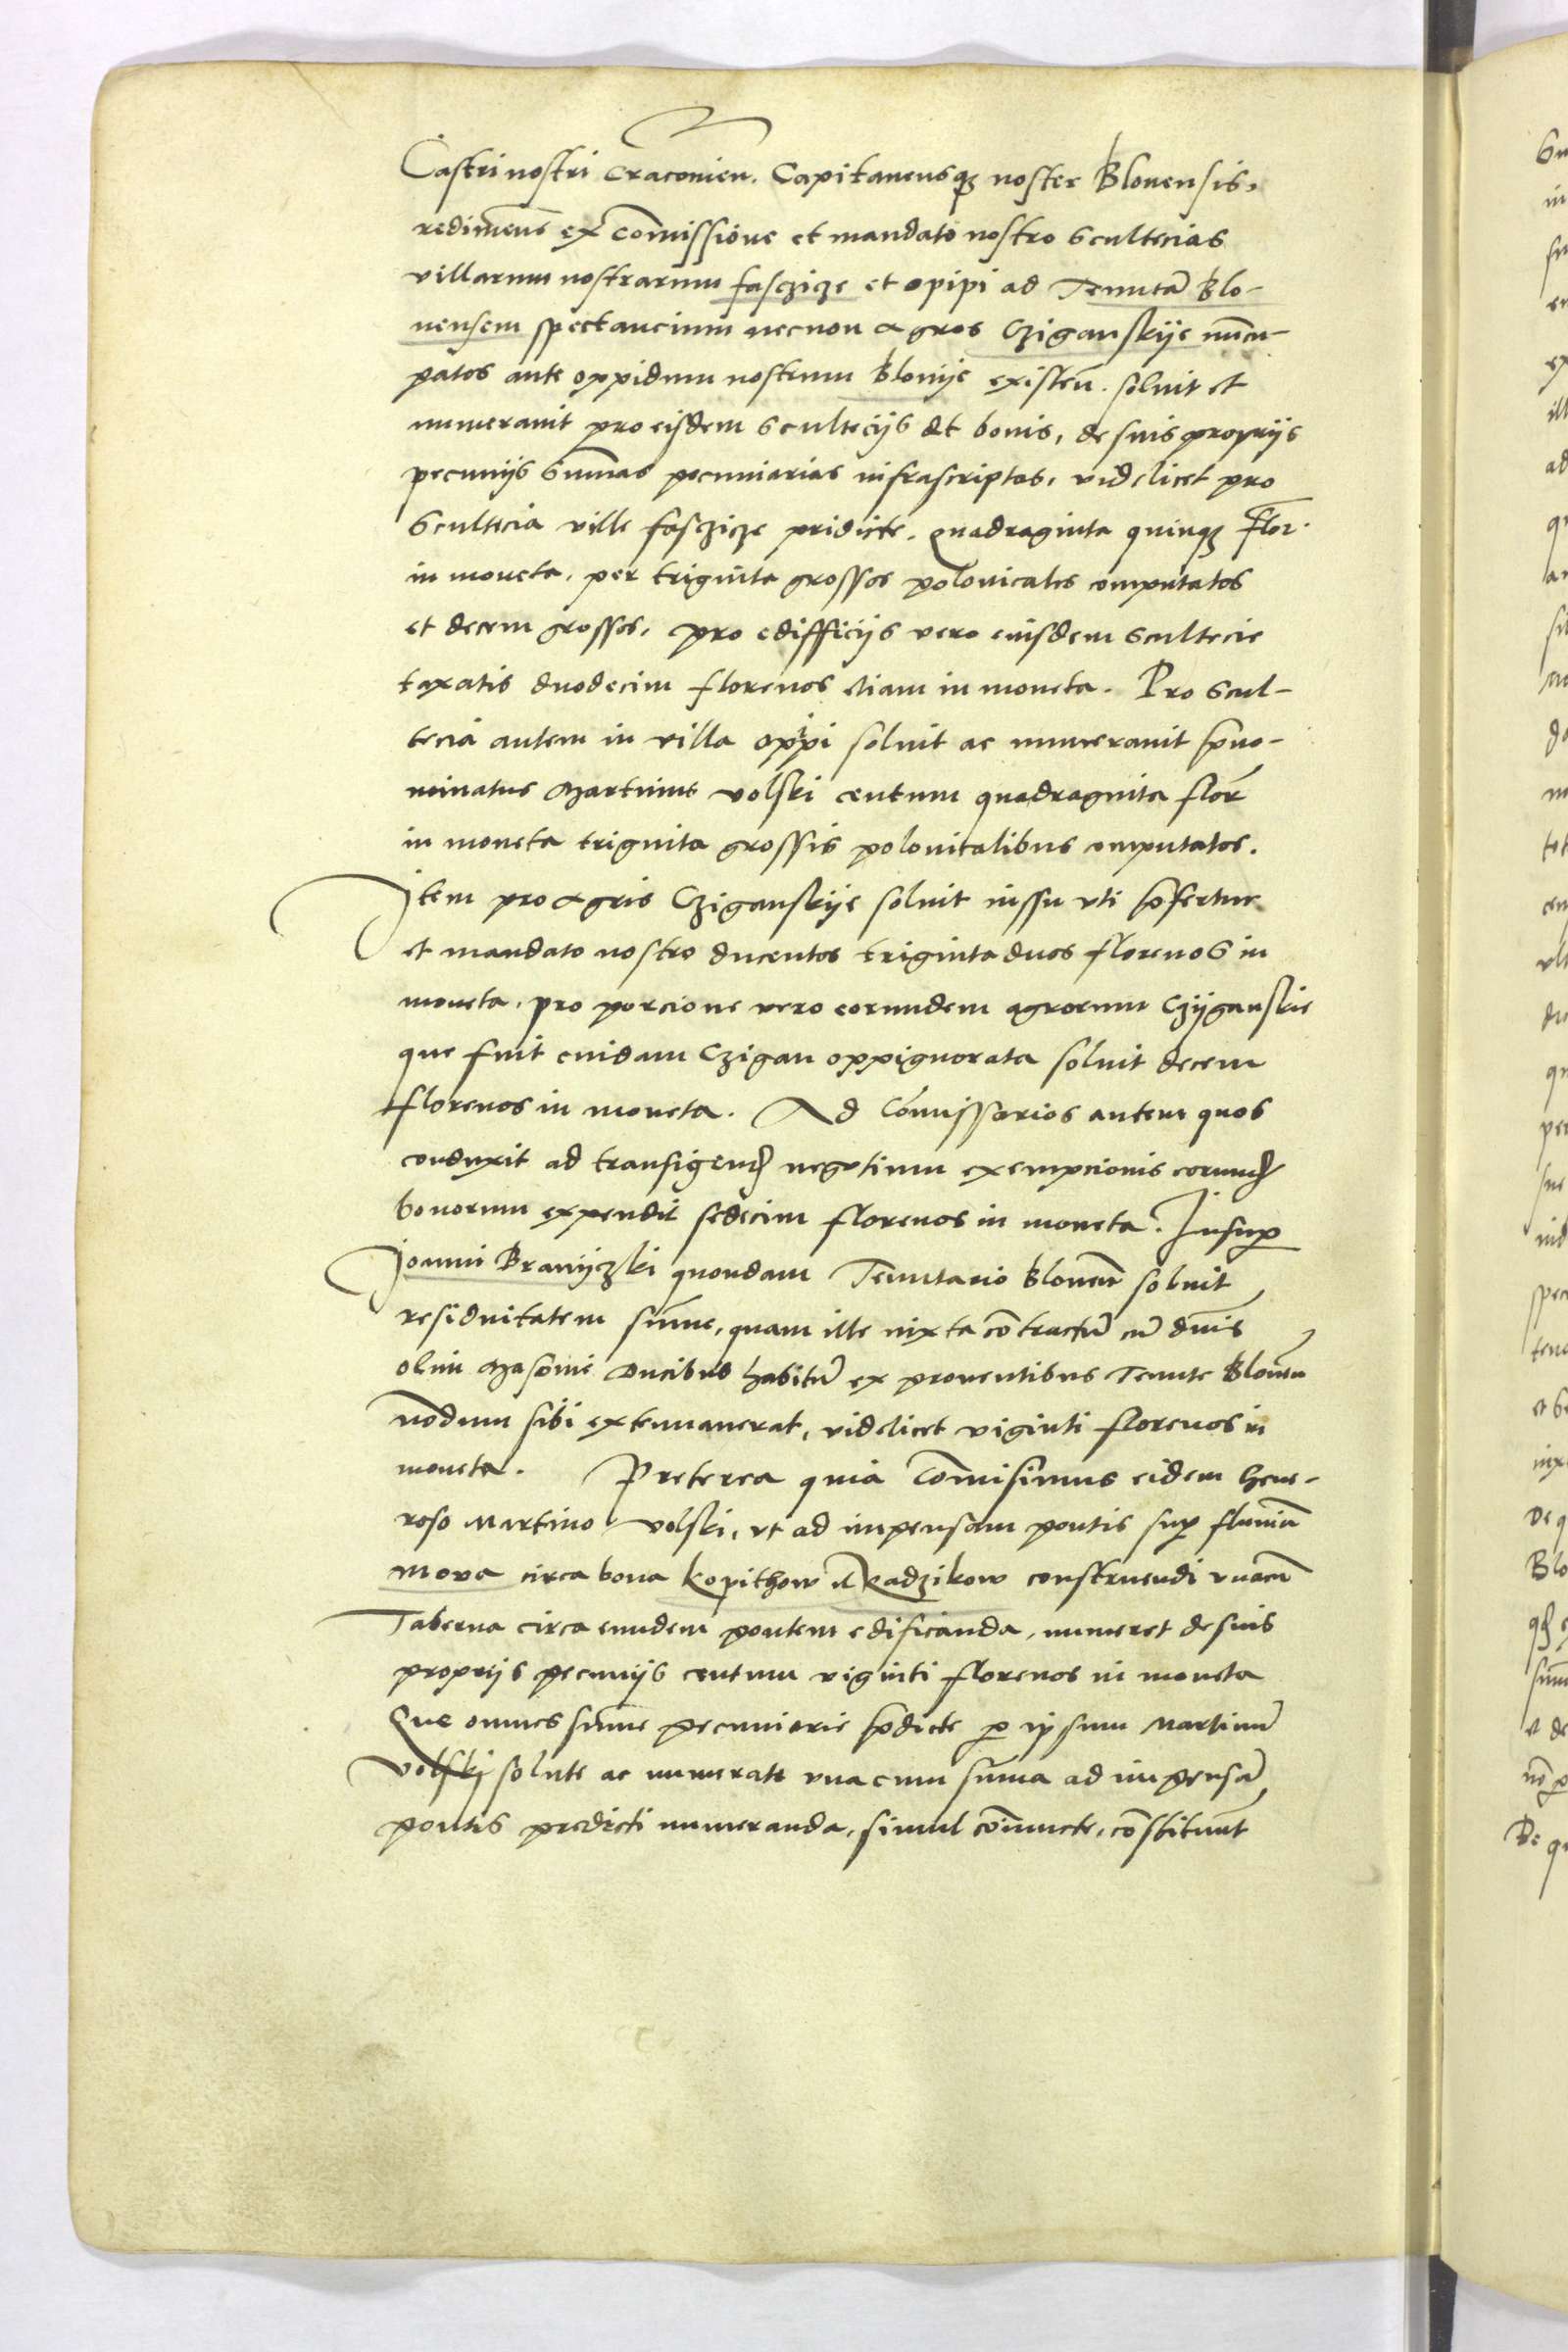 Castri nostri Cracovien. Capitaneusq₃ noster Blonensis,
redimens ex Comissione et mandato nostro scultecias
villarum nostrarum faszcizce et opipi ad Tenutā Blo-
nensem spectancium necnon agros Cziganskije nūcu-
patos ante oppidum nostrum Blonije existeñ. soluit et
numerauit pro eisdem sculteciis et bonis, de suis proprijs
pecunijs sūmas pecuniarias infrascriptas, videlicet pro
scultecia ville faszcizce pridicte, quadraginta quinq₃ flor.
in moneta, per triginta grossos polonicales computatos
et decem grossos, pro edifficijs vero euisdem scultecie
taxatis duodecim florenos etiam in moneta. Pro scul-
tecia autem in villa opipi soluit ac numerauit p̄no-
minatus Martinus volski centum quadraginta flor
in moneta triginta grossis polonicalibus computatos.
Item pro agris Cziganskije soluit iussu vti p̄fertur
et mandato nostro ducentos triginta duos florenos in
moneta, pro porcione vero eorundem agrorum Czijganskie
que fuit cuidam Czigan oppignorata soluit decem
florenos in moneta. Ad Cōmissarios autem quos
conduxit ad transigend negotium exempcionis eorund
bonorum expendit sedecim florenos in moneta. Insup
Joanni Branijczki quondam Tenutario Blonen̄ soluit
residuitatem sūme, quam ille iuxta cōtractū cū dn̄is
olim Masouie Ducibus habitū ex prouentibus Tenute Blonen̄
nōdum sibi extenuauerat, videlicet viginti florenos in
moneta. Preterea quia Comisimus eidem Gene-
roso Martino volski, vt ad impensam pontis sup fluuiū
Mova circa bona kopithow et Radzikow construendi vnacū
Taberna circa eundem pontem edificanda, numeret de suis
proprijs pecunijs centum viginti florenos in moneta
Que omnes sūme pecuniarie p̄dicte p ipsum Martinū
Volski solute ac numerate vnacum sūma ad impensā
pontis predicti numeranda, simul cōiuncte, cōstituunt